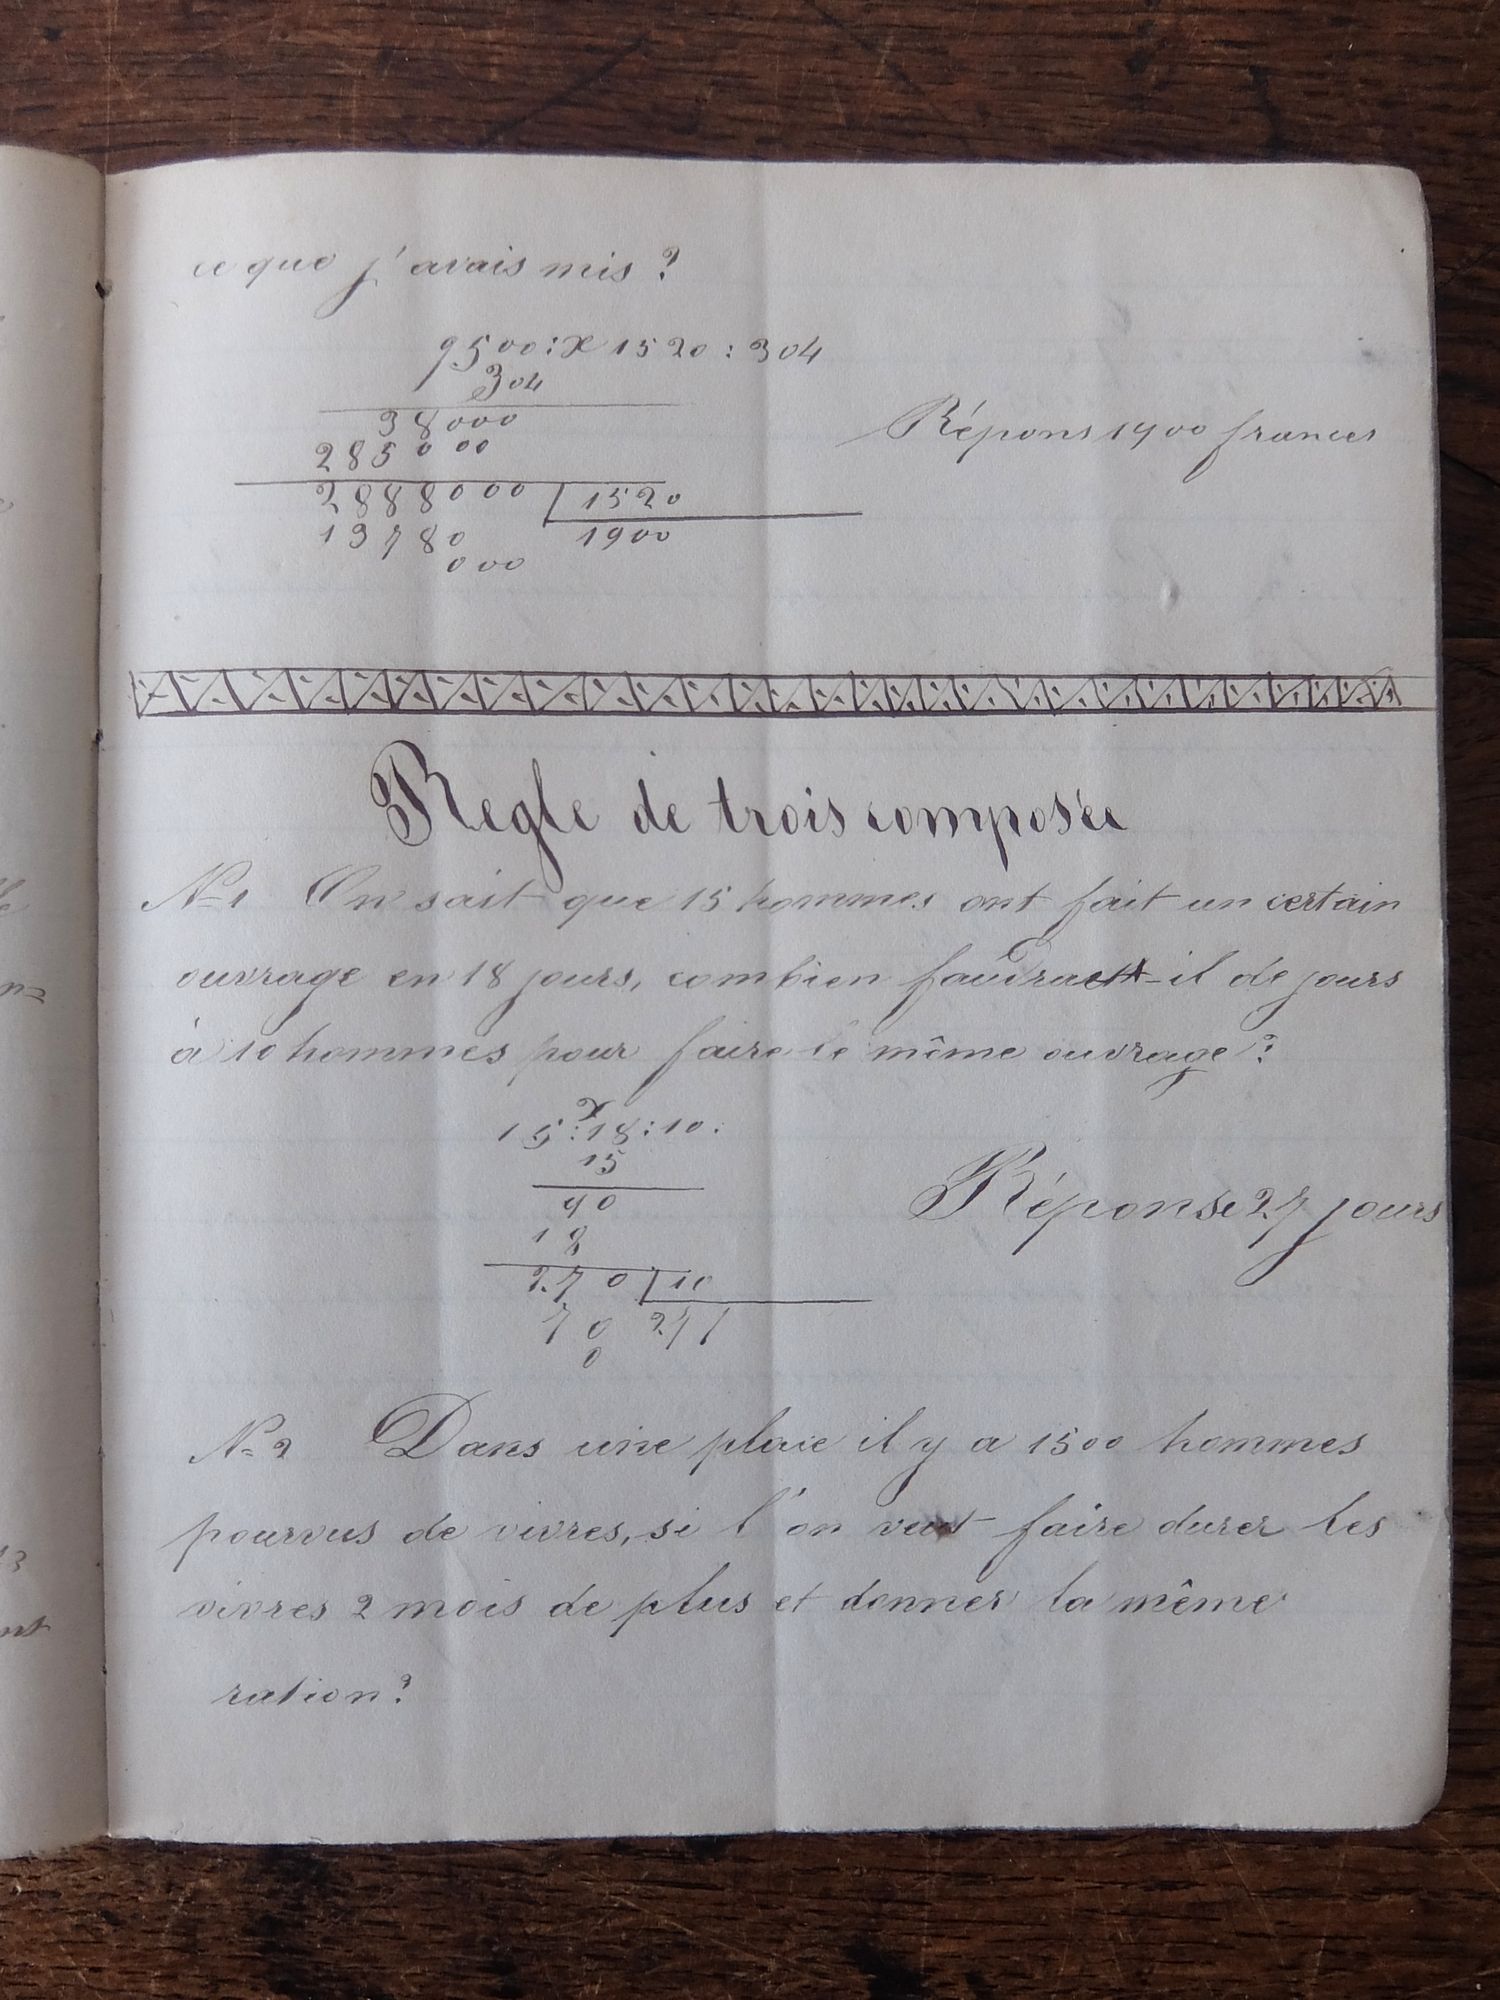 ce que j'avais mis?
9500 : x 1520 : 304
304
38000
285000
Répons 1900 frances
2888000 1520
13780 1900
000
Règle de trois composée
N=1 On sait que 15 hommes ont fait un certain
ouvrage en 18 jours, combien faudrait-il de jours
à 10 hommes pour faire le même ouvrage?
x
15 : 18 : 10.
15
90
Réponse 27 jours
18
270 10
70 27
0
N=2 Dans une place il y a 1500 hommes
pourvus de vivres, si l'on veut faire durer les
vivres 2 mois de plus et donner la même
ration?